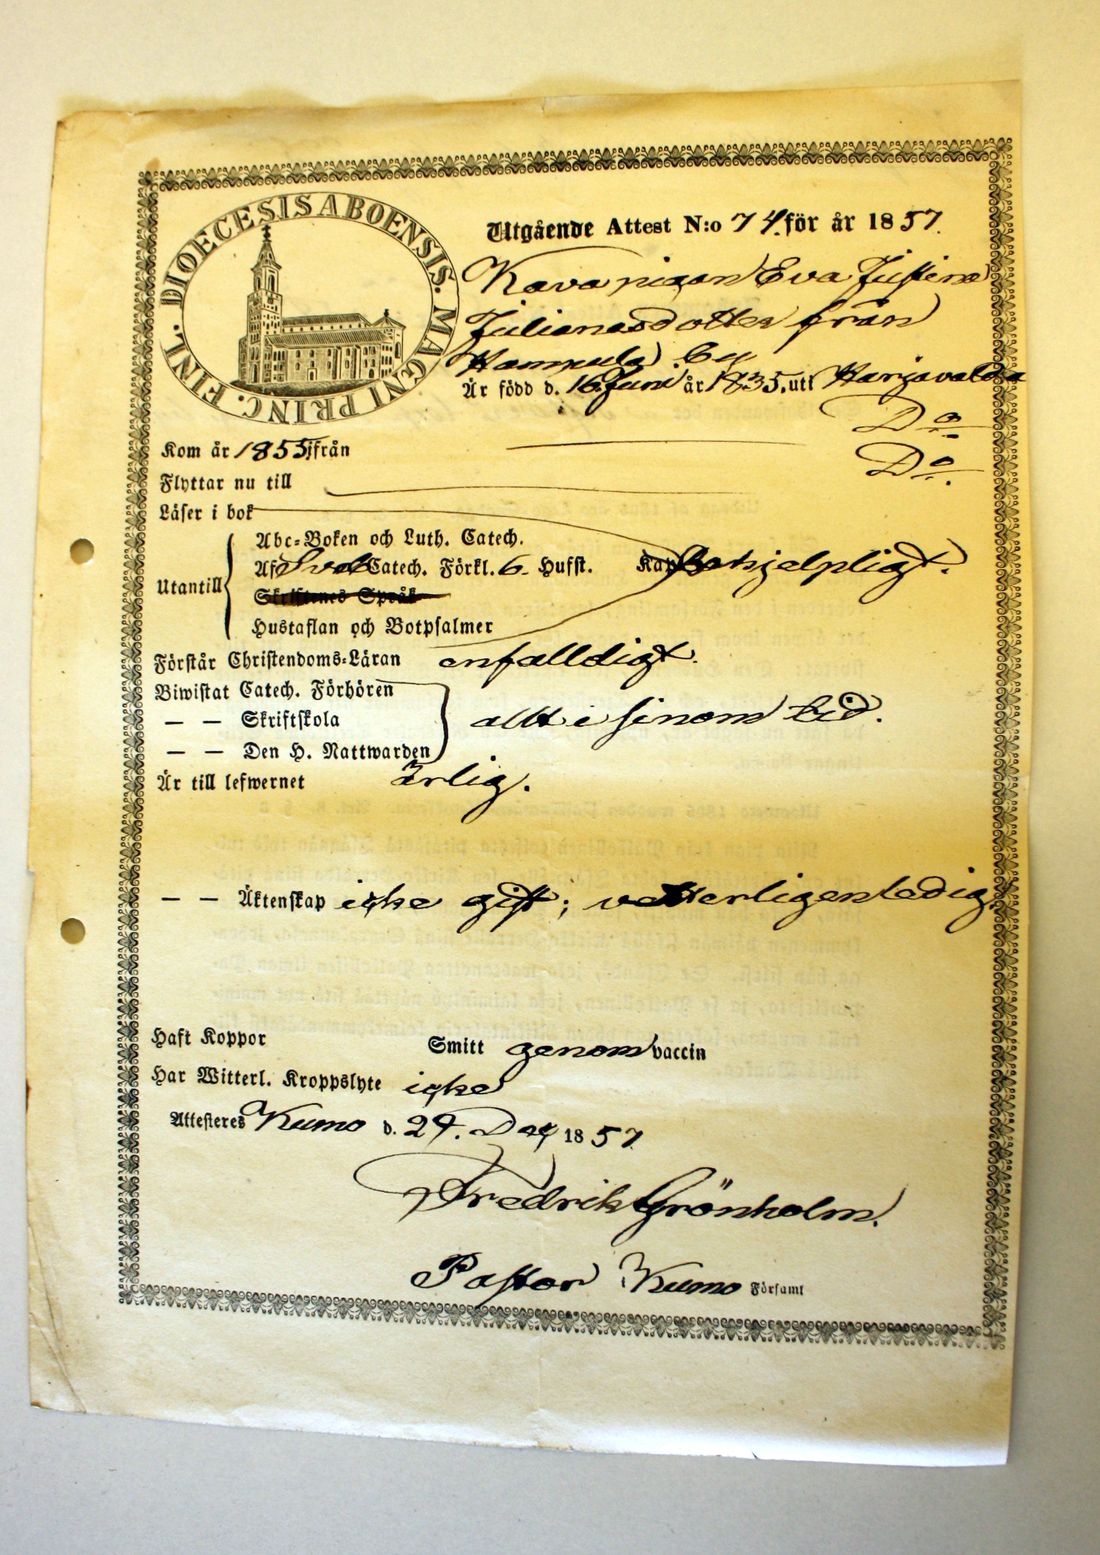 DIOECESIS ABOENSIS. MAGNI PRINC. FINL.
Utgående Attest N:o 74. för år 1857.
pigan Eva Justina
Julianasdotter från
by
Är född d. 16 Juni år 1835, uti Harjavalda
Kom år 1855, ifrån Do
Flyttar nu till Do.
Läser i bok
Abc-Boken och Luth. Catech.
Utantill Af Sveb Catech. Förkl. 6. Hufst. Kap behjelpligt.
Skriftenes Språk
Hustaflan och Botpsalmer
Förstår Christendoms-Läran enfalldigt.
Biwistat Catech. Förhören
— — Skriftskola allt i sinom tid.
— — Den H. Nattwarden
Är till lefwernet Erlig.
— — Äktenskap icke gift; veterligen ledig.
Haft Koppor Smitt genom vaccin
Har Witterl. Kroppslyte icke
Attesteres Kumo d. 24. Dec 1857
Fredrik Grönholm.
Pastor Kumo Församl